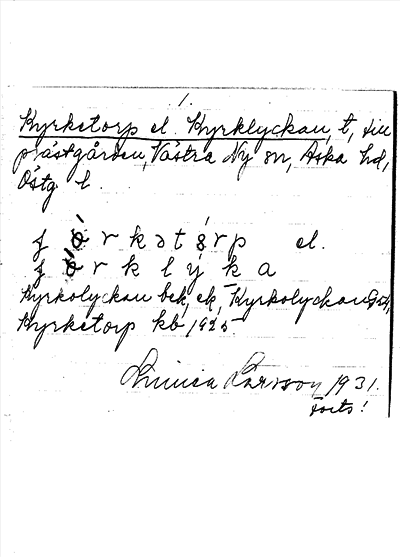 1.
Kyrketorp el. Kyrklyckan, t, till
prästgården, Västra Ny sn, Aska hd,
Östg l.
rkətɷrp el.
rklyka
Kyrkolyckan bek, ek, Kyrkolyckan
Kyrketorp kb 1925
Linnea Larsson 1931.
Forts!